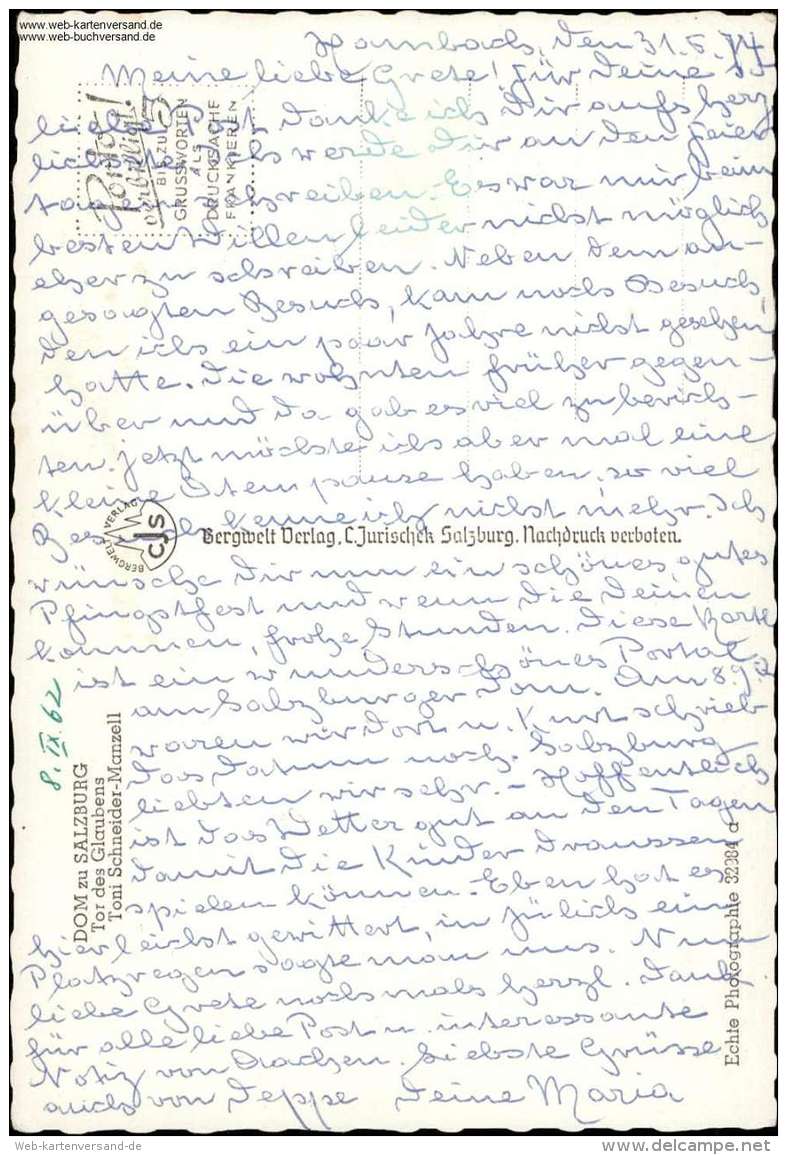 www.web-kartenversand.de
www.web-buchversand.de
Hambach, den 31.5.74
Meine liebe Grete! Für Deine
liebe Post danke ich Dir aufs herz
lichste. Ich werde Dir an den Feier
tagen schreiben. Es war mir beim
besten Willen leider nicht möglich
eher zu schreiben. Neben dem an-
gesagten Besuch, kam noch Besuch
den ich ein paar Jahre nicht gesehen
hatte. Die wohnten früher gegen-
über und da gab es viel zu berich-
ten. Jetzt möchte ich aber mal eine
kleine Atempause haben, so viel
Besuch kenne ich nicht mehr. Ich
wünsche Dir nun ein schönes gutes
Pfingstfest und wenn die Deinen
kommen, frohe Stunden. Diese Karte
ist ein wunderschönes Portal
am Salzburger Dom. Am 8.9.62
waren wir dort u. Kurt schrieb
das Datum noch. Salzburg
liebten wir sehr. - Hoffentlich
ist das Wetter gut an den Tagen
damit die Kinder draussen
spielen können. Eben hat es
hier leicht gewittert, in Jülich ein
Platzregen sagte man uns. Nun
liebe Grete nochmals herzl. Dank
für alle liebe Post u. interessante
Notiz von Aachen. Liebste Grüsse
auch von Seppe Deine Maria
Porto!
verbilligt!
BIS ZU 5
GRUSSWORTEN
ALS
DRUCKSACHE
FRANKIEREN
BERGWELT VERLAG
CJS
Bergwelt Verlag, C. Jurischek Salzburg. Nachdruck verboten.
8. IX. 62
DOM zu SALZBURG
Tor des Glaubens
Toni Schneider-Manzell
Echte Photographie 32384 d
Web-kartenversand-de
www.delcampe.net